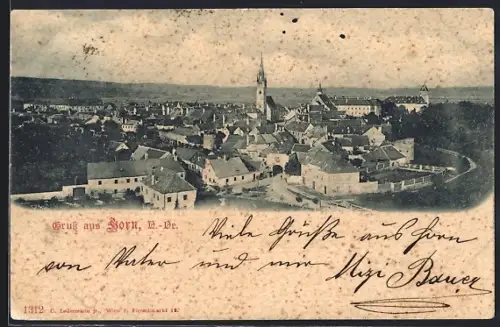 Gruß aus Horn, N.-Oe.
Viele Grüße aus Horn
von Vater und mir Mizi Bauer
1312 C. Ledermann jr., Wien I. Fleischmarkt 12.